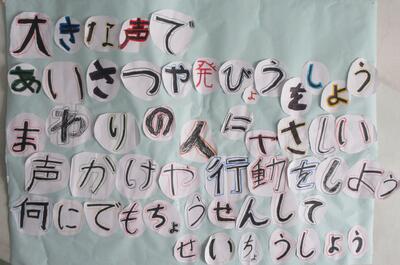 大きな声で
あいさつや発ぴょうをしよう
まわりの人にやさしい
声かけや行動をしよう
何にでもちょうせんして
せいちょうしよう